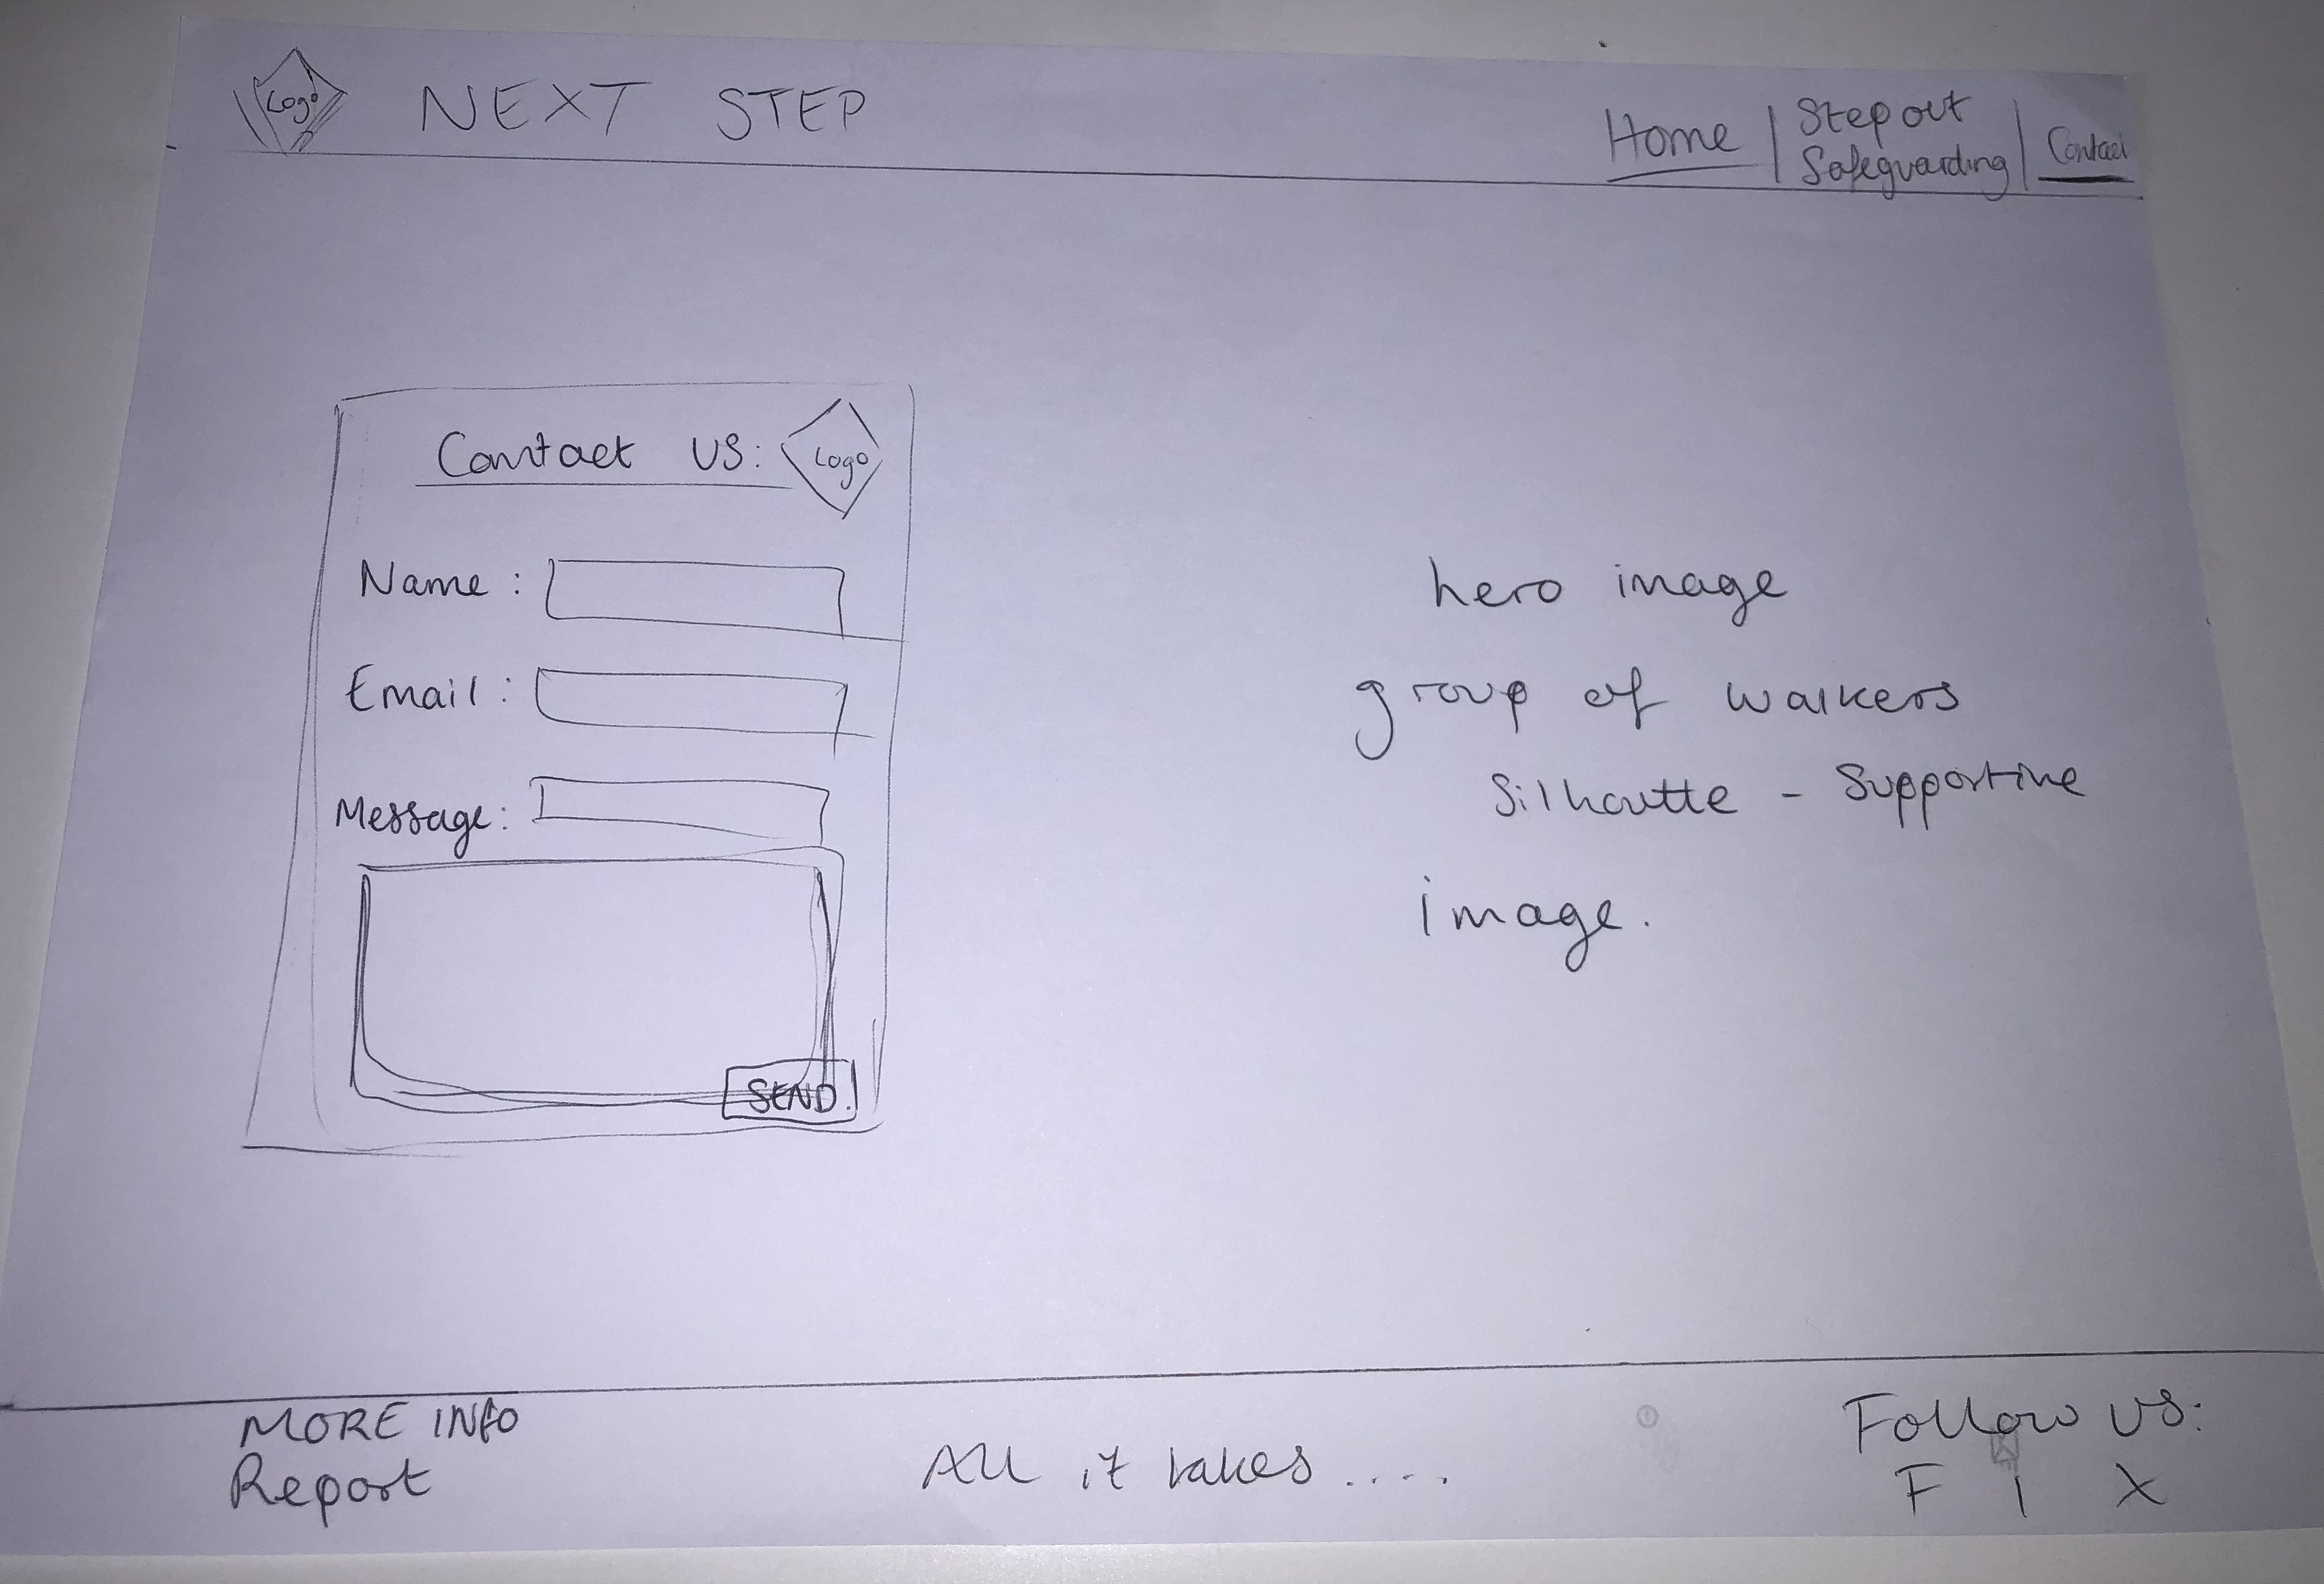 Logo NEXT STEP
Home | Step out Safeguarding | Contact
Contact US: Logo
Name :
Email :
Message:
SEND.
hero image
group of walkers
Silhoutte - Supportive
image.
MORE INFO
Report
All it takes ....
Follow US:
F I X